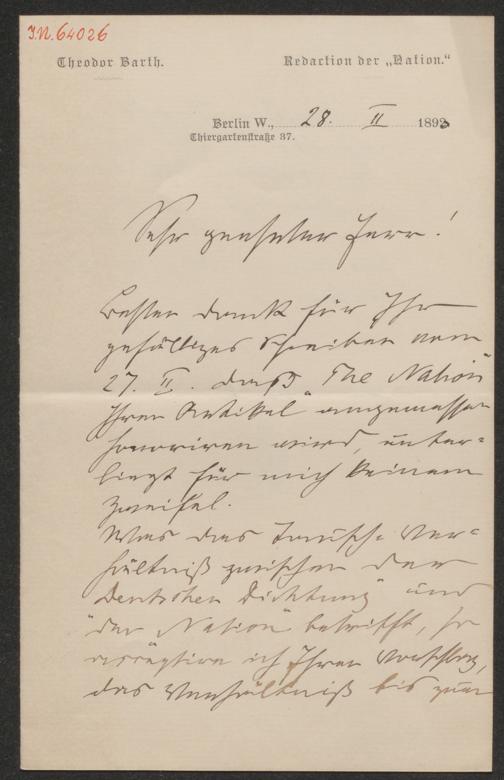 J.N. 64026
Theodor Barth.
Redaction der „Nation.“
Berlin W., 28. II 1893
Thiergartenstraße 37.
Sehr geehrter Herr!
Besten Dank für Ihr
gefälliges Schreiben vom
27. II. daß "The Nation"
Ihren Artikel angemessen
honoriren wird, unter-
liegt für mich keinem
Zweifel.
Was das Tausch-Ver-
hältniß zwischen der
"Deutschen Dichtung" und
"der Nation" betrifft, so
acceptire ich Ihren Vorschlag,
das Verhältniß bis zum